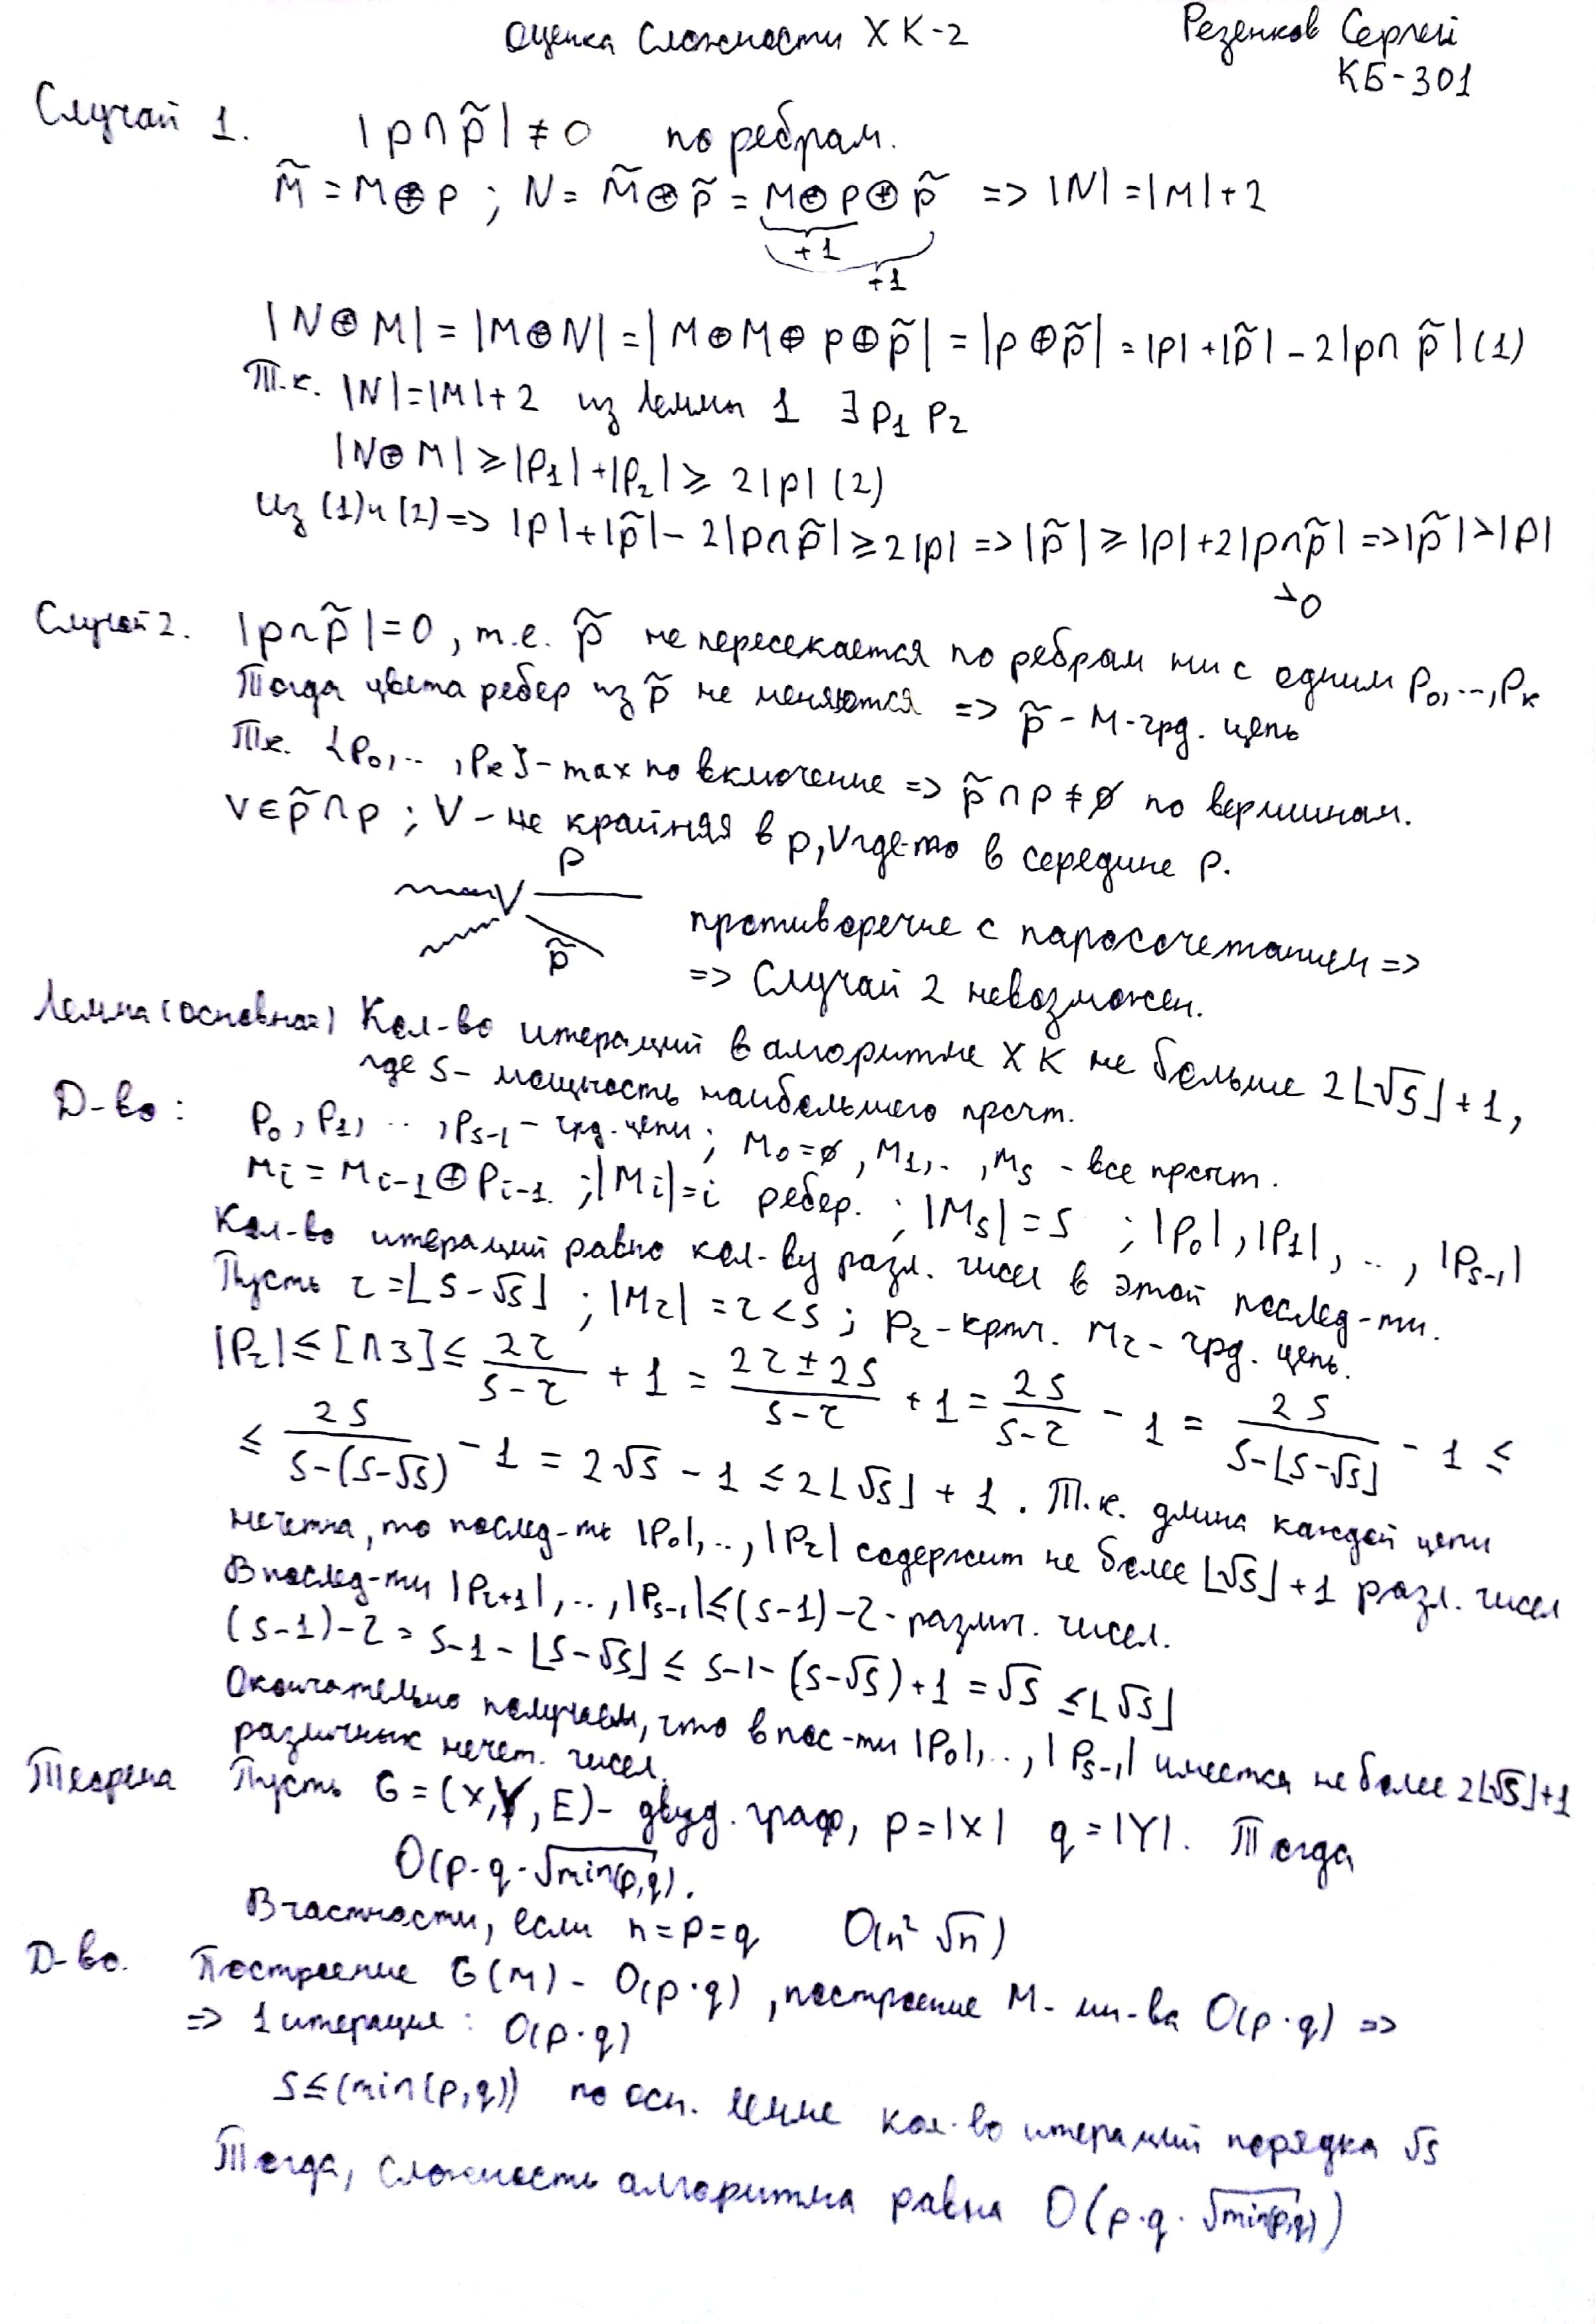 Оценка сложности ХК-2
Резенков Сергей
КБ-301
Случай 1. |p∩p̃| ≠ 0 по ребрам.
M̃ = M⊕p ; N = M̃⊕p̃ = M⊕p⊕p̃ => |N| = |M|+2
+1
+1
|N⊕M| = |M⊕N| = |M⊕M⊕p⊕p̃| = |p⊕p̃| = |p|+|p̃|-2|p∩p̃| (1)
Т.к. |N|=|M|+2 из Леммы 1 ∃ p₁ p₂
|N⊕M| ≥ |p₁|+|p₂| ≥ 2|p| (2)
Из (1) и (2) => |p|+|p̃|-2|p∩p̃| ≥ 2|p| => |p̃| ≥ |p|+2|p∩p̃| => |p̃|>|p|
>0
Случай 2. |p∩p̃|=0, т.е. p̃ не пересекается по ребрам ни с одним p₀,..,pₖ
Тогда цвета ребер из p̃ не меняются => p̃ - M-чрд. цепь
Тк. {p₀,..,pₖ}-max по включение => p̃∩p≠∅ по вершинам.
V∈p̃∩p ; V - не крайняя в p, V где-то в середине p.
p
V
p̃
противоречие с паросочетанием =>
=> Случай 2 невозможен.
Лемма (основная) Кол-во итераций в алгоритме ХК не больше 2⌊√s⌋+1,
где s - мощность наибольшего прсчт.
Д-во: p₀, p₁, .., pₛ₋₁ - чрд. цепи; M₀=∅, M₁,.., Mₛ - все прсчт.
Mᵢ = Mᵢ₋₁⊕pᵢ₋₁. ; |Mᵢ|=i ребер. ; |Mₛ|=s ; |p₀|, |p₁|, .., |pₛ₋₁|
Кол-во итераций равно кол-ву разл. чисел в этой послед-ти.
Пусть r=⌊s-√s⌋ ; |Mᵣ|=r<s ; pᵣ-кртч. Mᵣ-чрд. цепь.
|pᵣ| ≤ [Л3] ≤ 2r/(s-r) + 1 = (2r±2s)/(s-r) + 1 = 2s/(s-r) - 1 = 2s/(s-⌊s-√s⌋) - 1 ≤
≤ 2s/(s-(s-√s)) - 1 = 2√s - 1 ≤ 2⌊√s⌋ + 1. Т.к. длина каждой цепи
нечетна, то послед-ть |p₀|,..,|pᵣ| содержит не более ⌊√s⌋+1 разл. чисел
В послед-ти |pᵣ₊₁|,..,|pₛ₋₁| ≤ (s-1)-r - различ. чисел.
(s-1)-r = s-1-⌊s-√s⌋ ≤ s-1-(s-√s)+1 = √s ≤ ⌊√s⌋
Окончательно получаем, что в пос-ти |p₀|,..,|pₛ₋₁| имеется не более 2⌊√s⌋+1
различных нечет. чисел.
Теорема Пусть G=(X,Y,E) - двуд. граф, p=|X| q=|Y|. Тогда
O(p·q·√min(p,q)).
В частности, если n=p=q O(n²√n)
Д-во. Построение G(M) - O(p·q), построение M-мн-ва O(p·q) =>
=> 1 итерация: O(p·q)
s≤(min(p,q)) по осн. лемме кол-во итераций порядка √s
Тогда, сложность алгоритма равна O(p·q·√min(p,q))